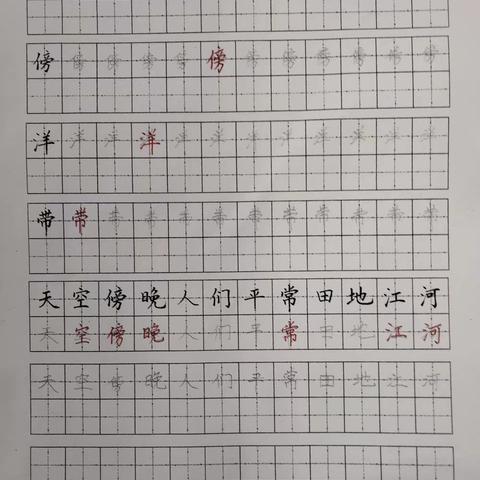 傍傍傍傍傍傍傍傍傍傍傍傍
洋洋洋洋洋洋洋洋洋洋洋洋
带带带带带带带带带带带带
天空傍晚人们平常田地江河
天空傍晚人们平常田地江河
天空傍晚人们平常田地江河